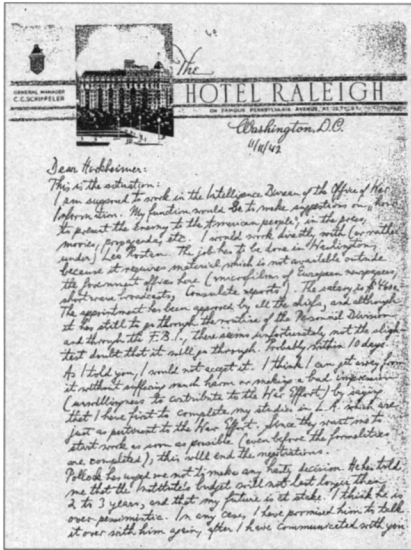 The
HOTEL RALEIGH
GENERAL MANAGER
C.C. SCHIFFELER
ON FAMOUS PENNSYLVANIA AVENUE AT 12TH ST.
Washington, D.C.
11/11/42
Dear Horkheimer:
This is the situation:
I am supposed to work in the Intelligence Bureau of the Office of War
Information. My function would be to make suggestions on "how
to present the enemy to the American people", in the press,
movies, propaganda, etc. I would work directly with (or rather
under) Leo Rosten. The job has to be done in Washington,
because it requires material which is not available outside
the Government offices here (microfilms of European newspapers,
short wave broadcasts, Consulate reports). The salary is $ 4600.
The appointment has been approved by all the chiefs, and although
it has still to go through the routine of the Personnel Division
and through the F.B.I., there seems unfortunately not the sligh-
test doubt that it will go through. Probably within 10 days.
As I told you, I would not accept it. I think I can get away from
it without suffering much harm or making a bad impression
(unwillingness to contribute to the War Effort) by saying
that I have first to complete my studies in L.A. which are
just as pertinent to the War Effort. Since they want me to
start work as soon as possible (even before the formalities
are completed), this will end the negotiations.
Pollock has urged me not to make any hasty decision. He has told
me that the Institute's budget will not last longer than
2 to 3 years, and that my future is at stake. I think he is
over pessimistic. In any case, I have promised him to talk
it over with him again, after I have communicated with you